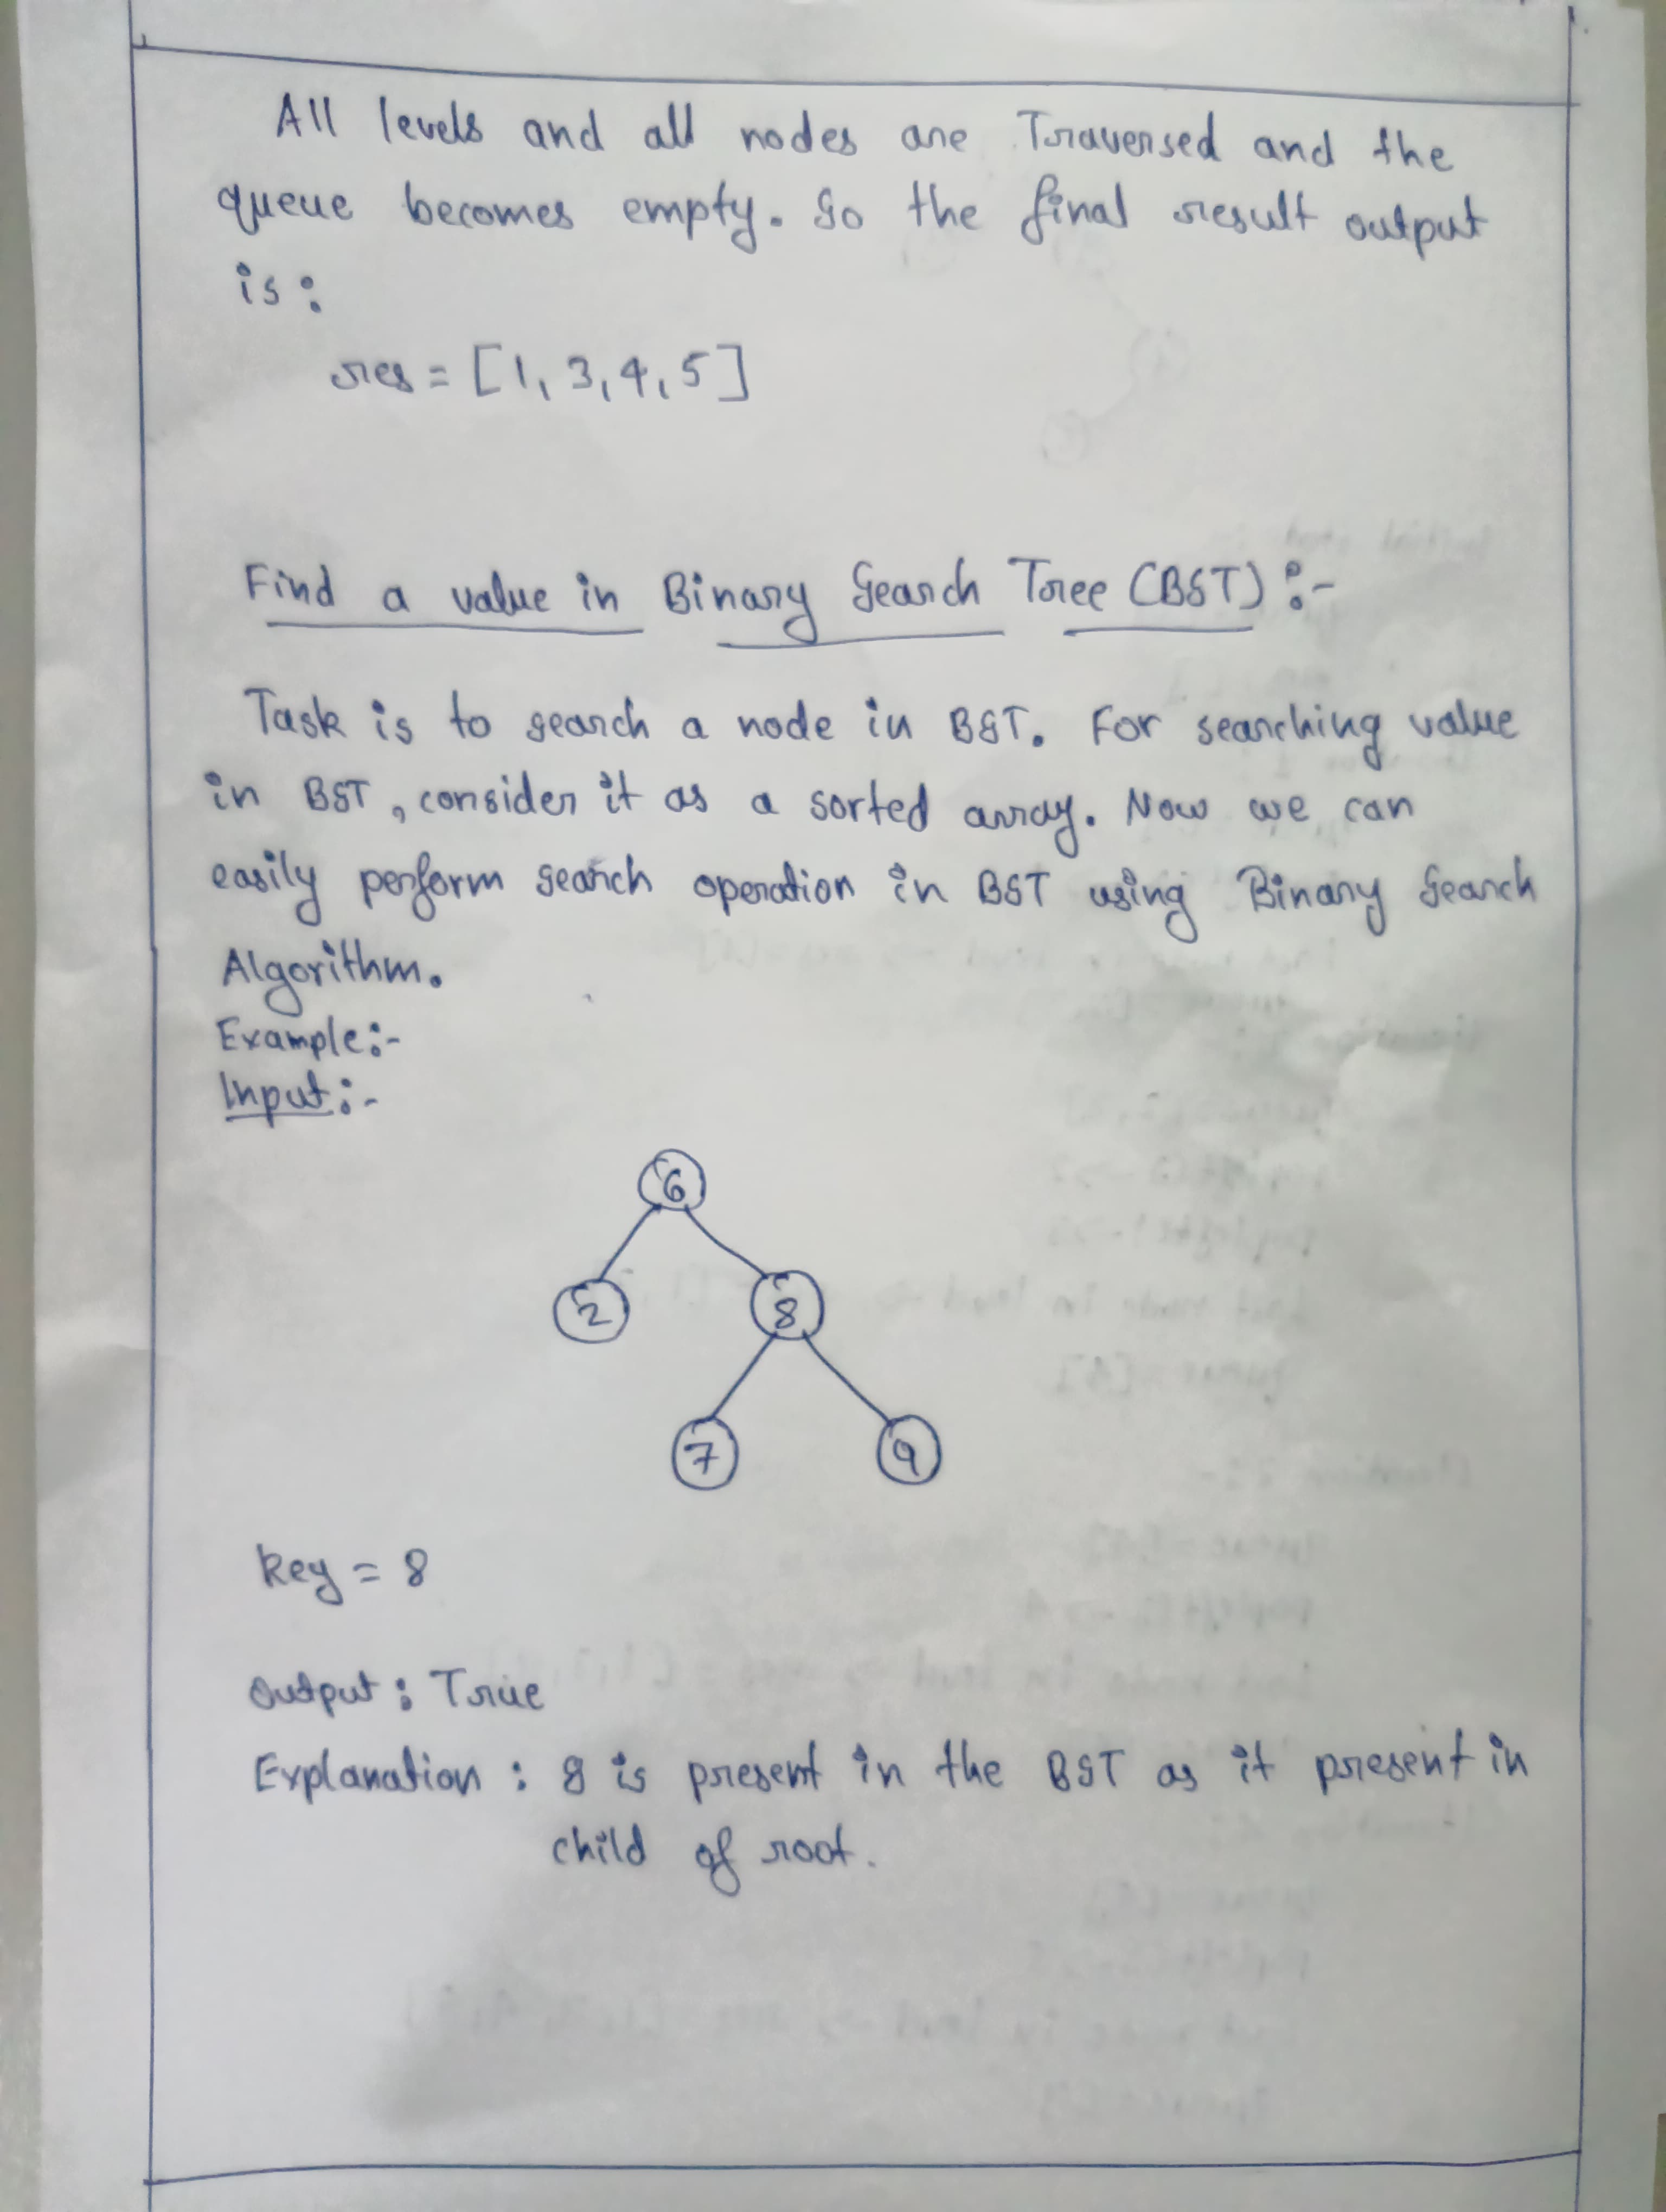 All levels and all nodes are Traversed and the
queue becomes empty. So the final result output
is:
res = [1, 3, 4, 5]
Find a value in Binary Search Tree (BST) :-
Task is to search a node in BST. For searching value
in BST, consider it as a sorted array. Now we can
easily perform search operation in BST using Binary Search
Algorithm.
Example:-
Input:-
6
2 8
7 9
key = 8
Output : True
Explanation : 8 is present in the BST as it present in
child of root.